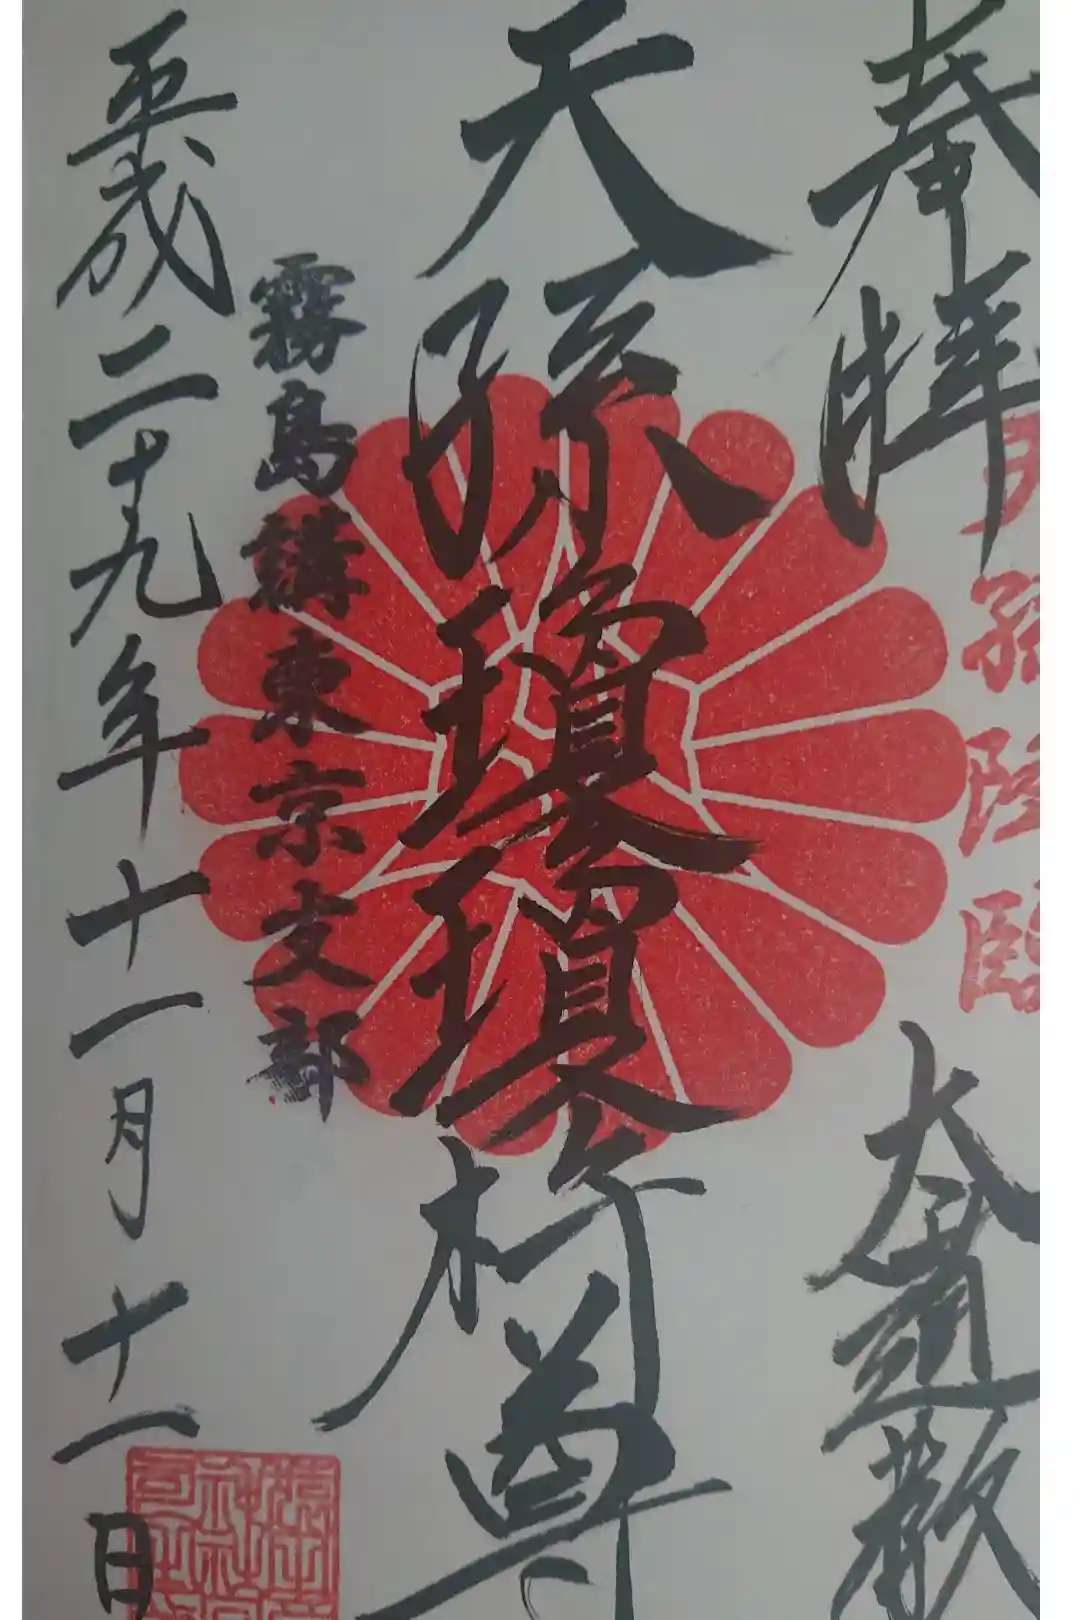 天孫降臨
奉拝 大道教
天孫瓊瓊杵尊
霧島講東京支部
平成二十九年十一月十一日